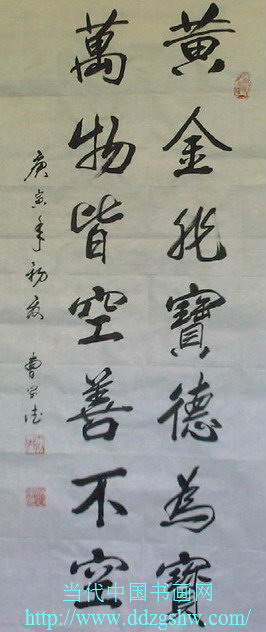 黄金非寶德為寶
萬物皆空善不空
庚寅年初夏 曹学德
当代中国书画网
http://www.ddzgshw.com/